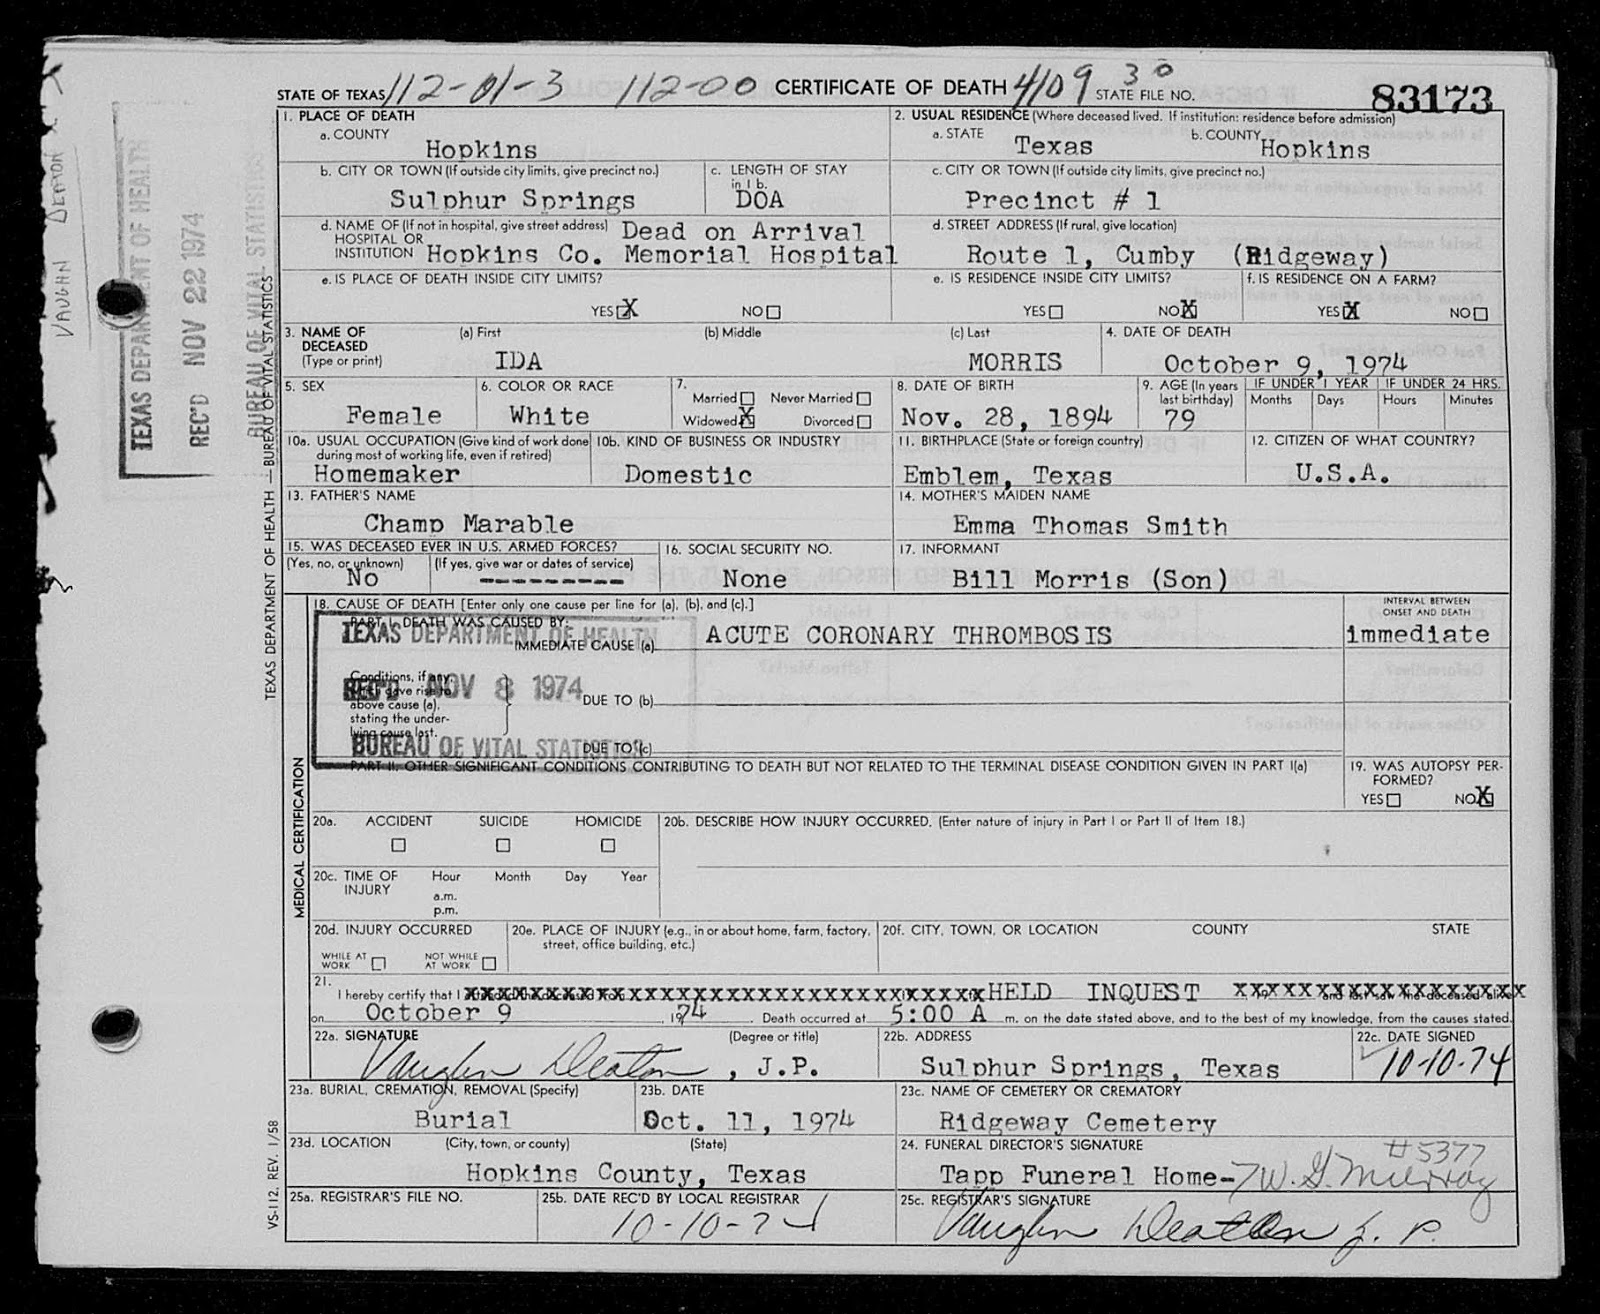 STATE OF TEXAS 112-01-3 112-00 CERTIFICATE OF DEATH 4109 30 STATE FILE NO. 83173
1. PLACE OF DEATH
a. COUNTY
Hopkins
2. USUAL RESIDENCE (Where deceased lived. If institution: residence before admission)
a. STATE
Texas
b. COUNTY
Hopkins
b. CITY OR TOWN (If outside city limits, give precinct no.)
Sulphur Springs
c. LENGTH OF STAY
in 1 b.
DOA
c. CITY OR TOWN (If outside city limits, give precinct no.)
Precinct # 1
d. NAME OF (If not in hospital, give street address) Dead on Arrival
HOSPITAL OR
INSTITUTION Hopkins Co. Memorial Hospital
d. STREET ADDRESS (If rural, give location)
Route 1, Cumby (Ridgeway)
e. IS PLACE OF DEATH INSIDE CITY LIMITS?
YES X NO
e. IS RESIDENCE INSIDE CITY LIMITS?
YES NO X
f. IS RESIDENCE ON A FARM?
YES X NO
3. NAME OF
DECEASED
(Type or print)
(a) First
IDA
(b) Middle
(c) Last
MORRIS
4. DATE OF DEATH
October 9, 1974
5. SEX
Female
6. COLOR OR RACE
White
7.
Married Never Married
Widowed X Divorced
8. DATE OF BIRTH
Nov. 28, 1894
9. AGE (In years
last birthday)
79
IF UNDER 1 YEAR
Months Days
IF UNDER 24 HRS.
Hours Minutes
10a. USUAL OCCUPATION (Give kind of work done
during most of working life, even if retired)
Homemaker
10b. KIND OF BUSINESS OR INDUSTRY
Domestic
11. BIRTHPLACE (State or foreign country)
Emblem, Texas
12. CITIZEN OF WHAT COUNTRY?
U.S.A.
13. FATHER'S NAME
Champ Marable
14. MOTHER'S MAIDEN NAME
Emma Thomas Smith
15. WAS DECEASED EVER IN U.S. ARMED FORCES?
(Yes, no, or unknown)
No
(If yes, give war or dates of service)
----------
16. SOCIAL SECURITY NO.
None
17. INFORMANT
Bill Morris (Son)
18. CAUSE OF DEATH [Enter only one cause per line for (a), (b), and (c).]
PART I. DEATH WAS CAUSED BY:
IMMEDIATE CAUSE (a) ACUTE CORONARY THROMBOSIS
INTERVAL BETWEEN
ONSET AND DEATH
immediate
Conditions, if any,
which gave rise to
above cause (a),
stating the under-
lying cause last.
DUE TO (b)
DUE TO (c)
TEXAS DEPARTMENT OF HEALTH
REC'D NOV 8 1974
BUREAU OF VITAL STATISTICS
PART II. OTHER SIGNIFICANT CONDITIONS CONTRIBUTING TO DEATH BUT NOT RELATED TO THE TERMINAL DISEASE CONDITION GIVEN IN PART I(a)
19. WAS AUTOPSY PER-
FORMED?
YES NO X
20a. ACCIDENT SUICIDE HOMICIDE
20b. DESCRIBE HOW INJURY OCCURRED. (Enter nature of injury in Part I or Part II of Item 18.)
20c. TIME OF
INJURY
Hour Month Day Year
a.m.
p.m.
20d. INJURY OCCURRED
WHILE AT
WORK
NOT WHILE
AT WORK
20e. PLACE OF INJURY (e.g., in or about home, farm, factory,
street, office building, etc.)
20f. CITY, TOWN, OR LOCATION COUNTY STATE
21.
I hereby certify that I HELD INQUEST
on October 9, 1974 Death occurred at 5:00 A m. on the date stated above, and to the best of my knowledge, from the causes stated.
22a. SIGNATURE (Degree or title)
Vaughn Deaton, J.P.
22b. ADDRESS
Sulphur Springs, Texas
22c. DATE SIGNED
10-10-74
23a. BURIAL, CREMATION, REMOVAL (Specify)
Burial
23b. DATE
Oct. 11, 1974
23c. NAME OF CEMETERY OR CREMATORY
Ridgeway Cemetery
23d. LOCATION (City, town, or county) (State)
Hopkins County, Texas
24. FUNERAL DIRECTOR'S SIGNATURE
#5377
Tapp Funeral Home- W. G. Murray
25a. REGISTRAR'S FILE NO.
25b. DATE REC'D BY LOCAL REGISTRAR
10-10-74
25c. REGISTRAR'S SIGNATURE
Vaughn Deaton J. P.
MEDICAL CERTIFICATION
TEXAS DEPARTMENT OF HEALTH — BUREAU OF VITAL STATISTICS
VS-112, REV. 1/58
TEXAS DEPARTMENT OF HEALTH
REC'D NOV 22 1974
BUREAU OF VITAL STATISTICS
VAUGHN DEATON